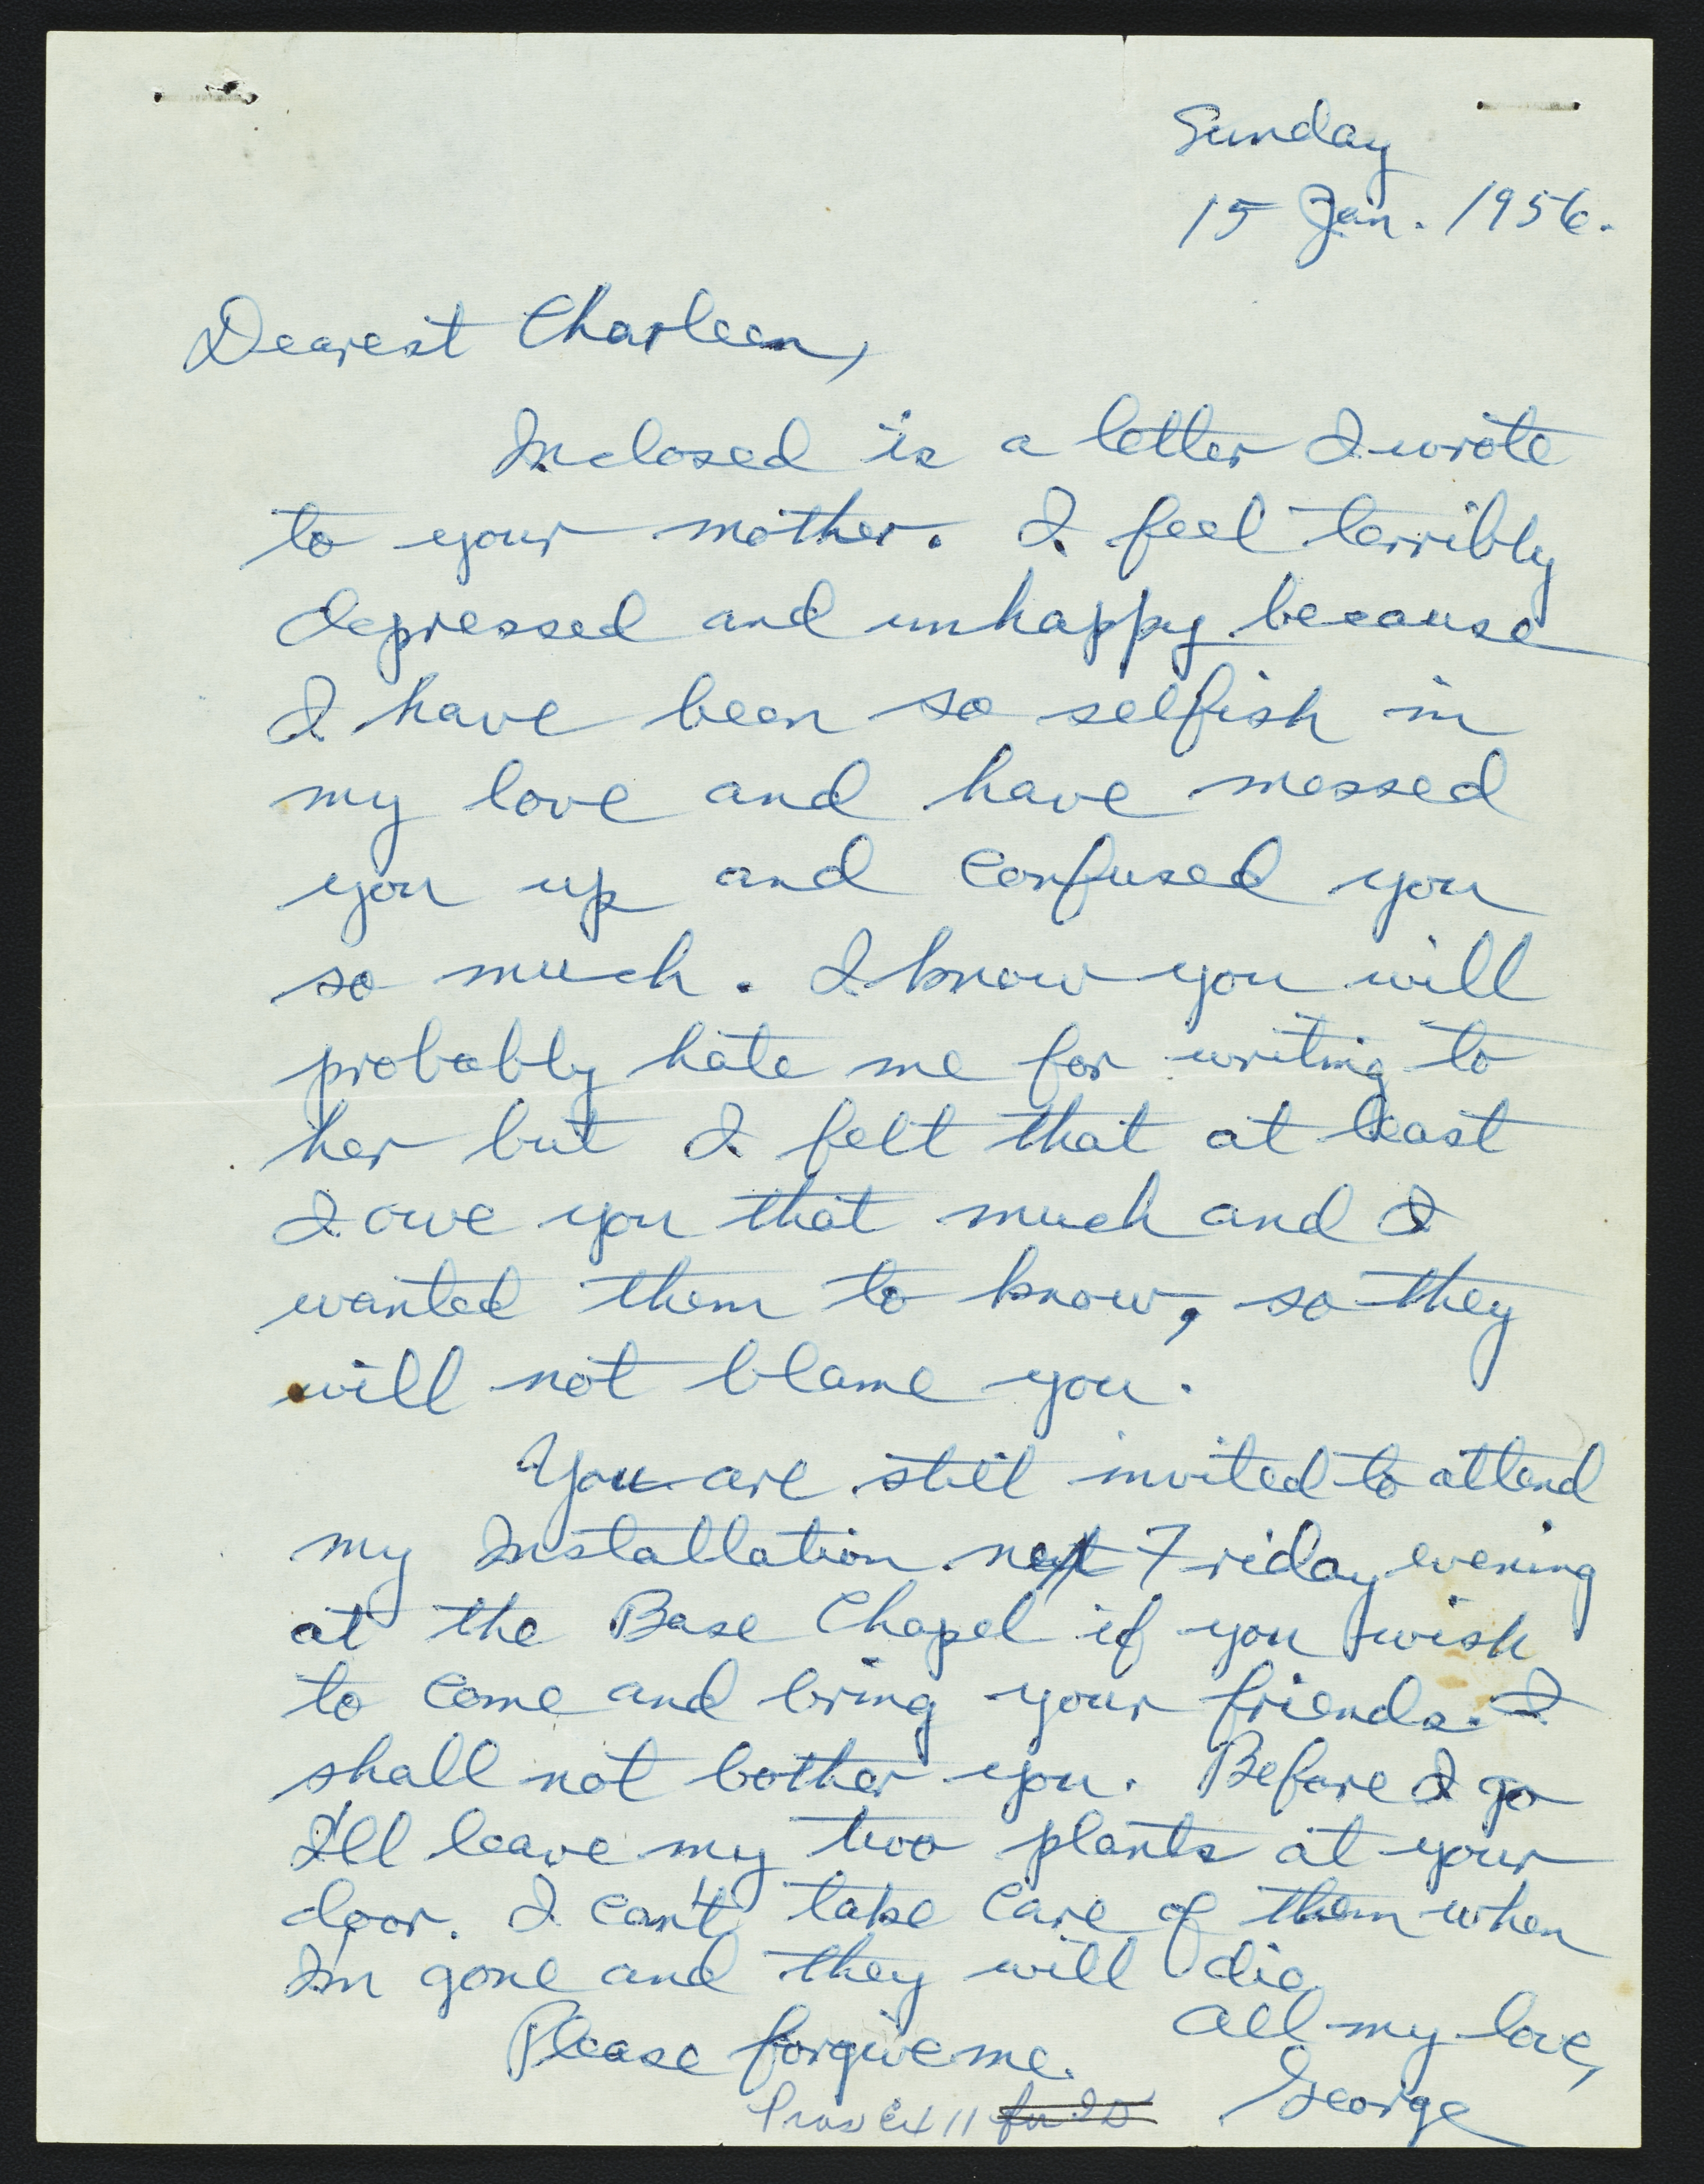 Sunday
15 Jan. 1956.
Dearest Charleen,
Inclosed is a letter I wrote
to your mother. I feel terribly
depressed and unhappy because
I have been so selfish in
my love and have messed
you up and confused you
so much. I know you will
probably hate me for writing to
her but I felt that at least
I owe you that much and I
wanted them to know, so they
will not blame you.
You are still invited to attend
my Installation next Friday evening
at the Base Chapel if you wish
to come and bring your friends. I
shall not bother you. Before I go
I'll leave my two plants at your
door. I can't take care of them when
I'm gone and they will die.
Please forgive me.
All my love,
George
Pros Ex 11 for ID